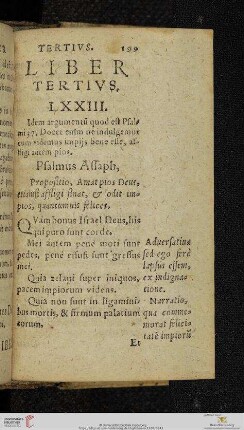 TERTIVS. 199
LIBER
TERTIVS.
LXXIII.
Idem argumentũ quod est Psal-
mi 37. Docet enim ne indulgemur
cum videmus impijs bene esse, af-
fligi autem pios.
Psalmus Assaph,
Propositio, Amat pios Deus,
etiamsi affligi sinat, & odit im-
pios, quantumuis felices.
QVam bonus Israel Deus, his
qui puro sunt corde.
Mei autem penè moti sunt
pedes, penè effusi sunt gressus
mei.
Quia zelaui super iniquos,
pacem impiorum videns.
Quia non sunt in ligamini-
bus mortis, & firmum palatium
eorum.
Aduersatiua
sed ego ferè
lapsus essem,
ex indigna-
tione.
Narratio,
qua comme-
morat felici-
tatẽ impiorũ
Et